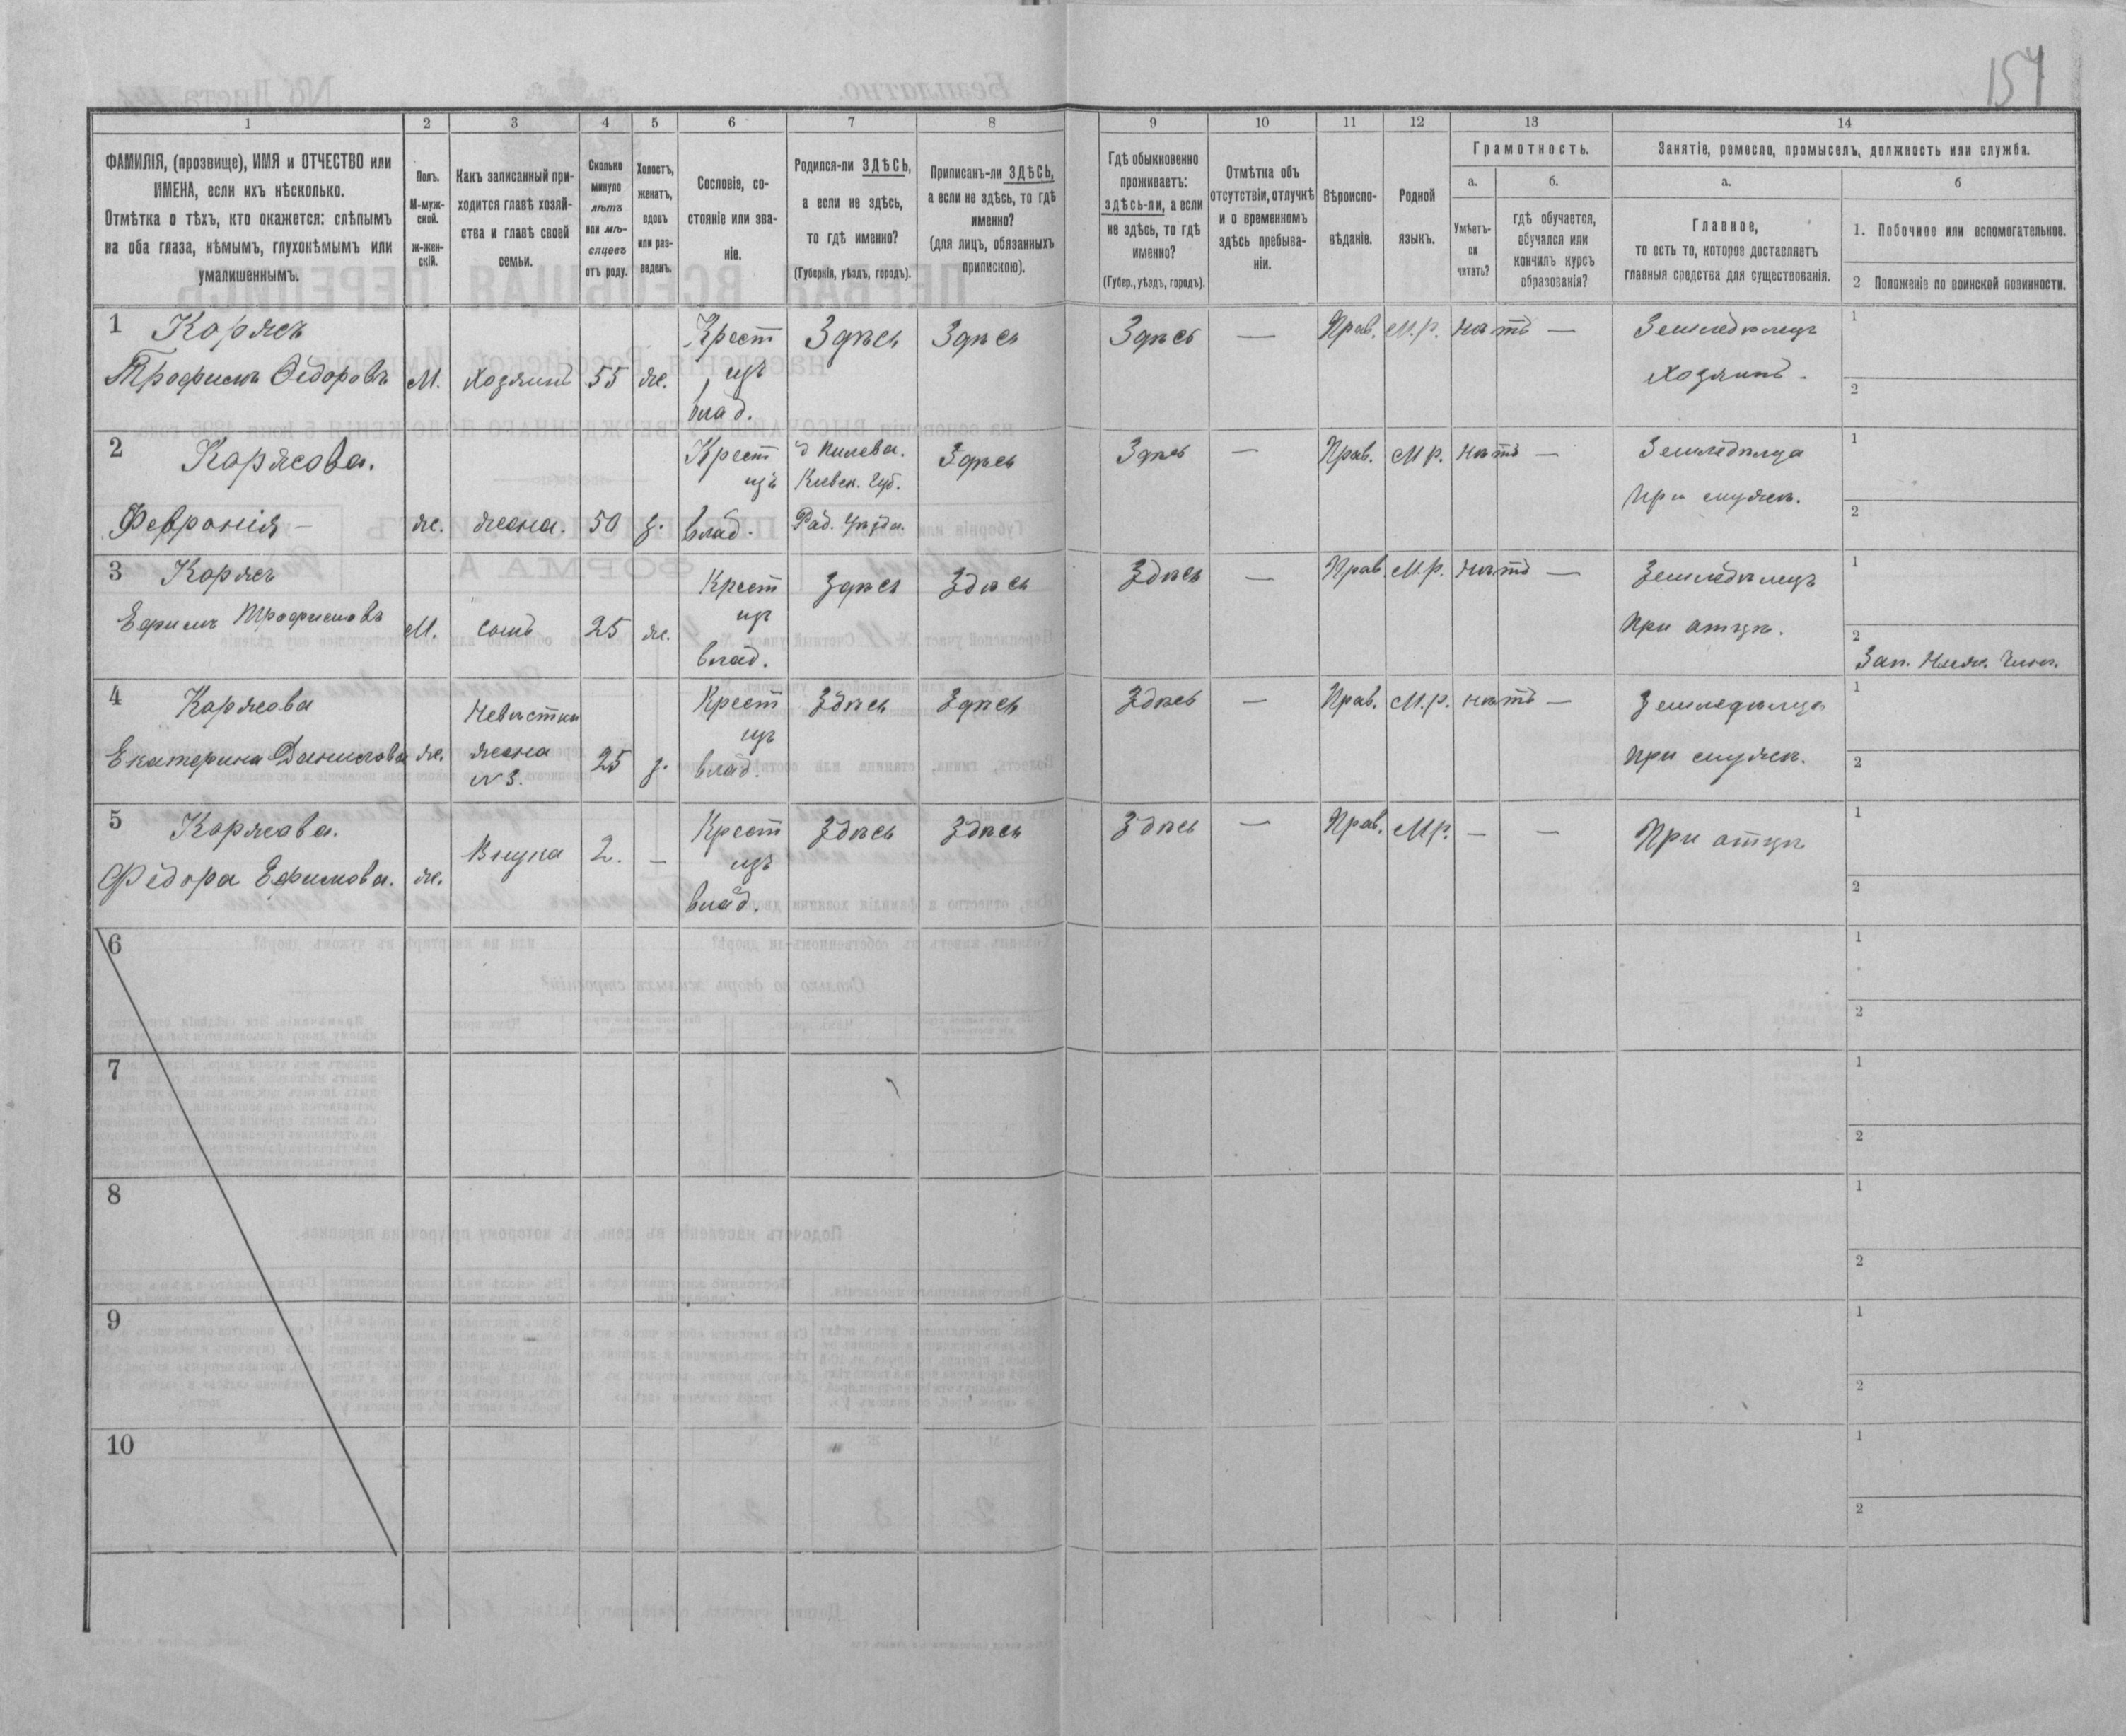 154
1 2 3 4 5 6 7 8 9 10 11 12 13 14
ФАМИЛІЯ, (прозвище), ИМЯ и ОТЧЕСТВО или ИМЕНА, если ихъ нѣсколько.
Отмѣтка о тѣхъ, кто окажется: слѣпымъ на оба глаза, нѣмымъ, глухонѣмымъ или умалишеннымъ.
Полъ.
М-мужской.
ж-женскій.
Какъ записанный приходится главѣ хозяйства и главѣ своей семьи.
Сколько минуло лѣтъ или мѣсяцевъ отъ роду.
Холостъ, женатъ, вдовъ или разведенъ.
Сословіе, состояніе или званіе.
Родился-ли ЗДѢСЬ, а если не здѣсь, то гдѣ именно?
(Губернія, уѣздъ, городъ).
Приписанъ-ли ЗДѢСЬ, а если не здѣсь, то гдѣ именно?
(для лицъ, обязанныхъ припискою).
Гдѣ обыкновенно проживаетъ: здѣсь-ли, а если не здѣсь, то гдѣ именно?
(Губер., уѣздъ, городъ).
Отмѣтка объ отсутствіи, отлучкѣ и о временномъ здѣсь пребываніи.
Вѣроисповѣданіе.
Родной языкъ.
Грамотность.
а.
Умѣетъ-ли читать?
б.
гдѣ обучается, обучался или кончилъ курсъ образованія?
Занятіе, ремесло, промыселъ, должность или служба.
а.
Главное,
то есть то, которое доставляетъ главныя средства для существованія.
б
1. Побочное или вспомогательное.
2 Положеніе по воинской повинности.
1 Коржъ
Трофимъ Ѳедоровъ М. хозяинъ 55 ж. Крест изъ влад. Здѣсь Здѣсь Здѣсь — Прав. М.р. нѣтъ — Земледѣлецъ хозяинъ. 1 2
2 Коржова.
Февронія — ж. жена. 50 з. Крест изъ влад. Кіевск. Губ. Рад. Уѣзда. Здѣсь Здѣсь — Прав. М р. нѣтъ — Земледѣлица при мужѣ. 1 2
3 Коржъ
Ефимъ Трофимовъ М. сынъ 25 ж. Крест изъ влад. Здѣсь Здѣсь Здѣсь — Прав М.р. нѣтъ — Земледѣлецъ при отцѣ. 1 2 Зап. Нижн. Чинъ.
4 Коржова
Екатерина Данилова ж. Невѣстка жена №3. 25 з. Крест изъ влад. Здѣсь Здѣсь Здѣсь — Прав. М.р. нѣтъ — Земледѣлица при мужѣ. 1 2
5 Коржова.
Федора Ефимова. ж. Внука 2. — Крест изъ влад. Здѣсь Здѣсь Здѣсь — Прав. М р. — — При отцѣ 1 2
6 1 2
7 1 2
8 1 2
9 1 2
10 1 2